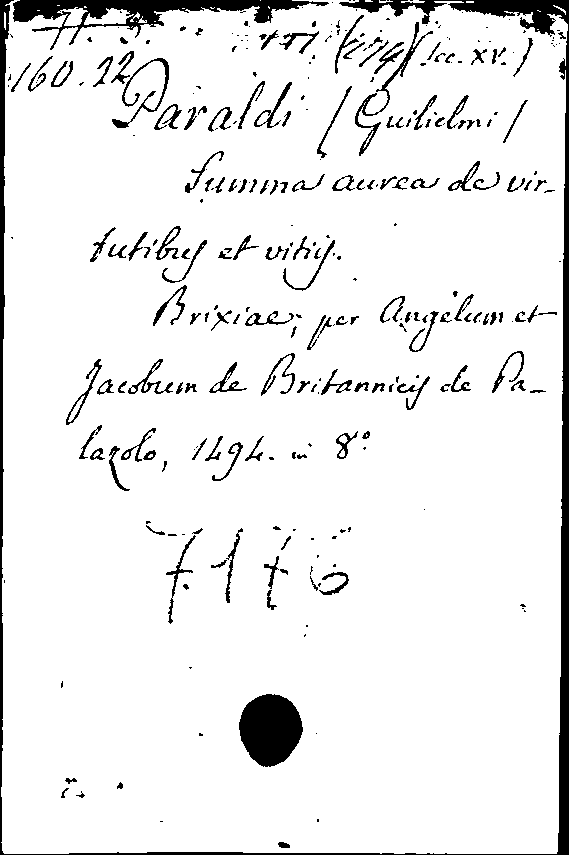 (Sec. XV.)
160.22
Paraldi (Guilielmi)
Summa aurea de vir-
tutibus et vitiis.
Brixiae, per Angelum et
Jacobum de Britannicis de Pa-
lazolo, 1494. in 8°
7.176